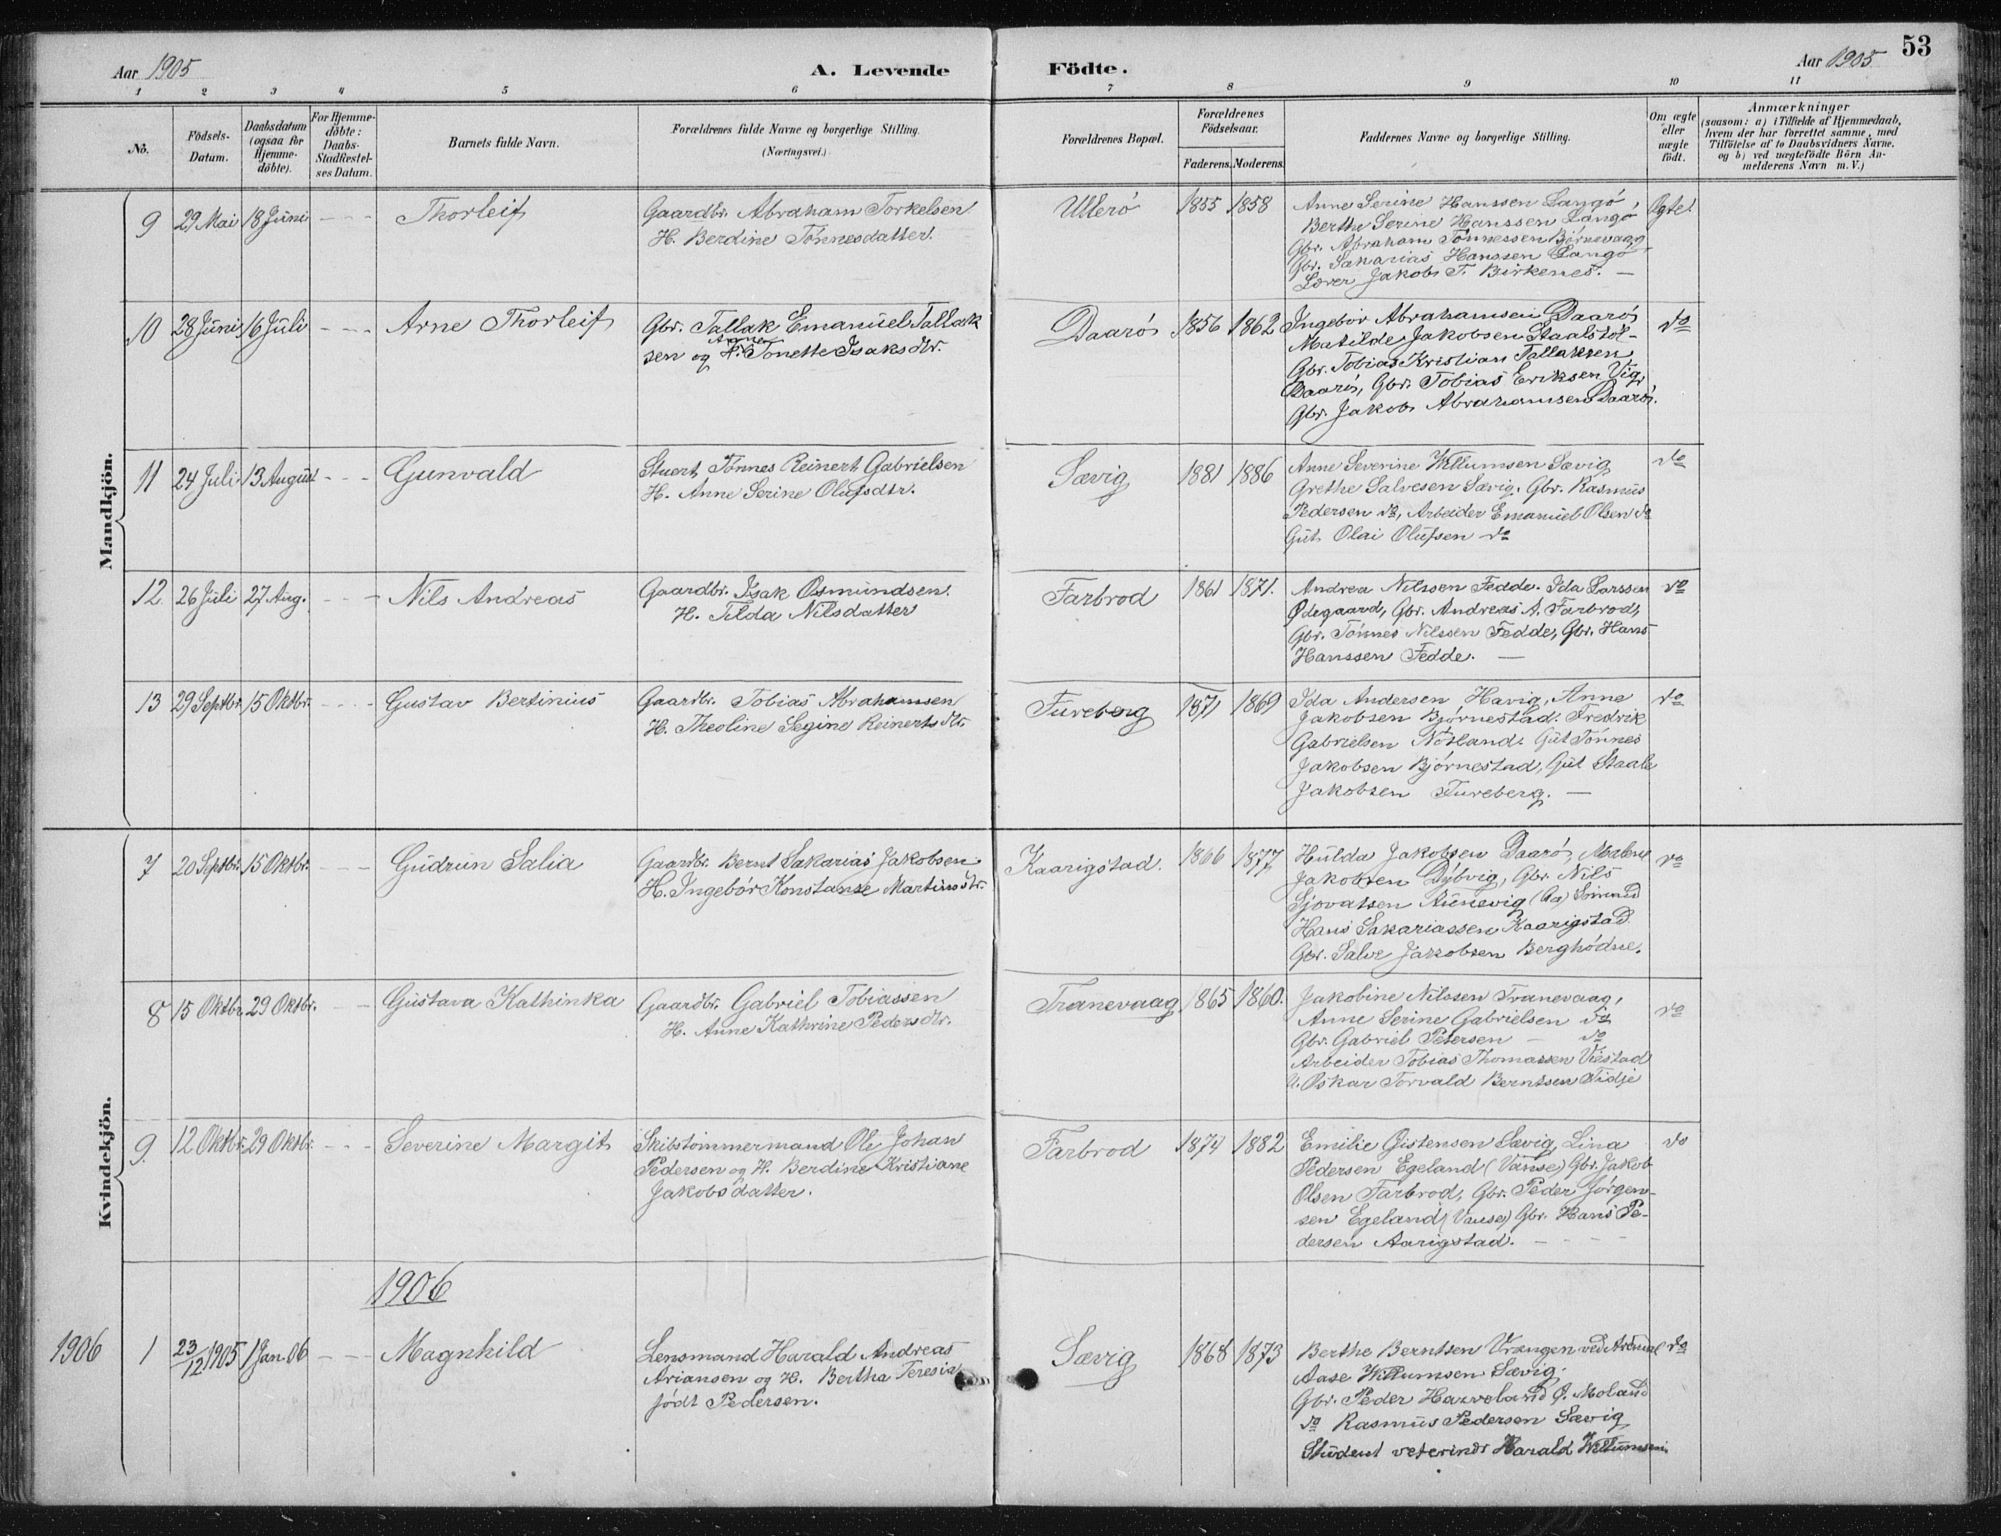 53
Aar 1905
A. Levende Födte.
Aar 1905
1 2 3 4 5 6 7 8 9 10 11
No.
Födsels-
Datum.
Daabsdatum
(ogsaa for
Hjemme-
döbte).
For Hjemme-
döbte:
Daabs-
Stadfestel-
ses Datum.
Barnets fulde Navn.
Forældrenes fulde Navne og borgerlige Stilling.
(Næringsvei.)
Forældrenes Bopæl.
Forældrenes
Födselsaar.
Faderens. Moderens.
Faddernes Navne og borgerlige Stilling.
Om ægte
eller
uægte
födt.
Anmærkninger
(saasom: a) i Tilfælde af Hjemmedaab,
hvem der har forrettet samme, med
Tilföielse af to Daabsvidners Navne,
og b) ved uægtefödte Börn An-
melderens Navn m. V.)
Mandkjön.
9 29 Mai 18 Juni - - - Thorleif
Gaardbr. Abraham Torkelsen
H. Berdine Tønnesdatter.
Ullerø 1855 1858
Anne Serine Hanssen Langø
Berthe Serine Hanssen Langø,
Gbr. Abraham Tønnessen Bjørnevaag
Gbr. Sakarias Hanssen Langø
Lærer Jakob T. Birkenes. —
Ægte.
10 28 Juni 16 Juli - - - Arne Thorleif
Gbr. Tallak Emanuel Tallak
sen og H. Anne Tonette Isaksdtr.
Daarø 1856 1862
Ingebor Abrahamsen Daarø
Matilde Jakobsen Staalstøl -
Gbr. Tobias Kristian Tallaksen
Daarø, Gbr. Tobias Eriksen Vig,
Gbr. Jakob Abrahamsen Daarø.
do
11 24 Juli 13 August - - - Gunvald
Stuert Tønnes Reinert Gabrielsen
H. Anne Serine Olufsdtr.
Sævig 1881 1886
Anne Severine Willumsen Sævig
Grethe Salvesen Sævig. Gbr. Rasmus
Pedersen do, Arbeider Emanuel Olsen do
Gut Olai Olufsen do
do
12. 26 Juli 27 Aug. - - - Nils Andreas
Gaardbr. Isak Osmundsen.
H. Tilda Nilsdatter
Farbrod 1861 1871.
Andrea Nilssen Fedde. Ida Larssen
Ødegaard, Gbr. Andreas A. Farbrod,
Gbr. Tønnes Nilssen Fedde, Gbr. Hans
Hanssen Fedde. —
do
13 29 Septbr. 15 Oktbr. - - - Gustav Bertinius
Gaardbr. Tobias Abrahamsen
H. Theoline Segine Reinertsdtr
Fureberg 1871 1869
Ida Andersen Havig, Anne
Jakobsen Bjørnestad. Fredrik
Gabrielsen Nøtland. Gut Tønnes
Jakobsen Bjørnestad, Gut Staale
Jakobsen Fureberg. —
do
Kvindekjön.
7 20 Septbr. 15 Oktbr. - - - Gudrun Salia
Gaardbr. Bernt Sakarias Jakobsen
H. Ingebør Konstanse Martinsdtr.
Kaarigstad. 1866 1877
Hulda Jakobsen Daarø, Malene
Jakobsen Dybvig, Gbr. Nils
Sjovatsen Aunevig
Hans Sakariassen Kaarigstad
Gbr. Salve Jakobsen Berghødne.
do
8 15 Oktbr 29 Oktbr. - - - Gustava Kathinka
Gaardbr. Gabriel Tobiassen
H. Anne Kathrine Pedersdtr.
Tranevaag 1865 1860.
Jakobine Nilssen Tranevaag,
Anne Serine Gabrielsen do
Gbr. Gabriel Petersen — do
Arbeider Tobias Thomassen Viestad
U. Oskar Torvald Berntsen Fidje
do
9. 12 Oktbr. 29 Oktbr. - - - Severine Margit
Skibstømmermand Ole Johan
Pedersen og H. Berdine Kristiane
Jakobsdatter.
Farbrod 1874 1882
Emilie Gistensen Sævig, Lina
Pedersen Egeland (Vanse) Gbr. Jakob
Olsen Farbrod, Gbr. Peder Jørgen-
sen Egeland (Vanse) Gbr. Hans Pe-
dersen Aarigstad. - - - -
do
1906
1906 1 23/12 1905 1 Jan. 06 - - - Magnhild
Lensmand Harald Andreas
Ariansen og H. Bertha Teresia
født Pedersen.
Sævig 1868 1873
Berthe Berntsen Vrangen ved Arendal
Aase Willumsen Sævig.
Gbr. Peder Haaveland Ø. Moland
do Rasmus Pedersen Sævig
Student veterinær Harald Willumsen
do